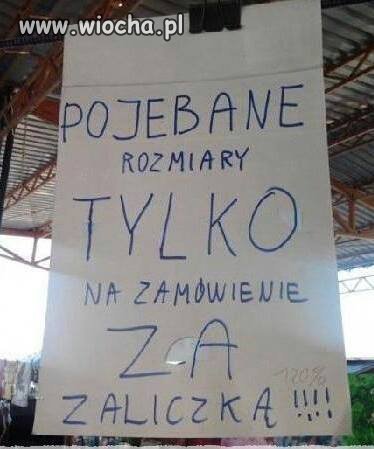 www.wiocha.pl
POJEBANE
ROZMIARY
TYLKO
NA ZAMÓWIENIE
ZA
120%
ZALICZKĄ !!!!